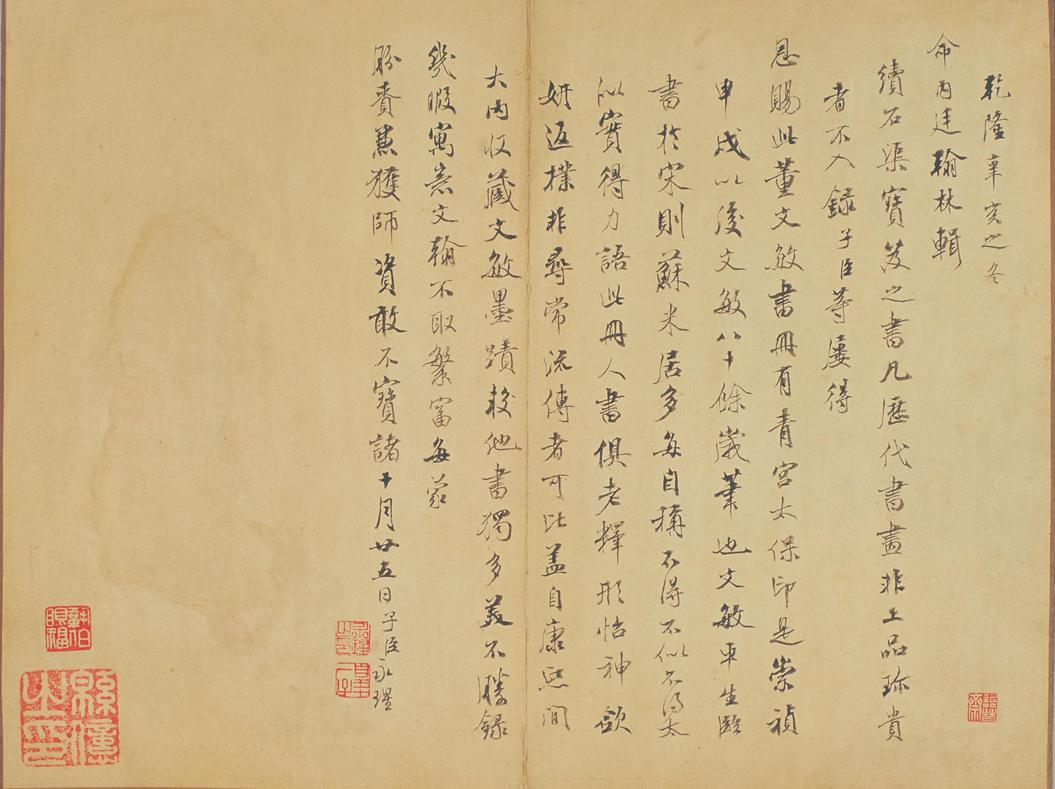 乾隆辛亥之冬
命內廷翰林輯
續石渠寶笈之書凡歷代書畫非上品珎貴
者不入錄子臣等屢得
恩賜此董文敏書冊有青宮太保印是崇禎
甲戌以後文敏八十餘歲筆也文敏平生臨
書於宋則蘇米居多每自稱不得不似不得太
似實得力語此冊人書俱老釋形怡神歛
妍返樸非尋常流傳者可比盖自康熙間
大內收藏文敏墨蹟較他書獨多美不勝錄
幾暇寓意文翰不取繁富每蒙
頒賚兼獲師資敢不寶諸十月廿五日子臣永瑆